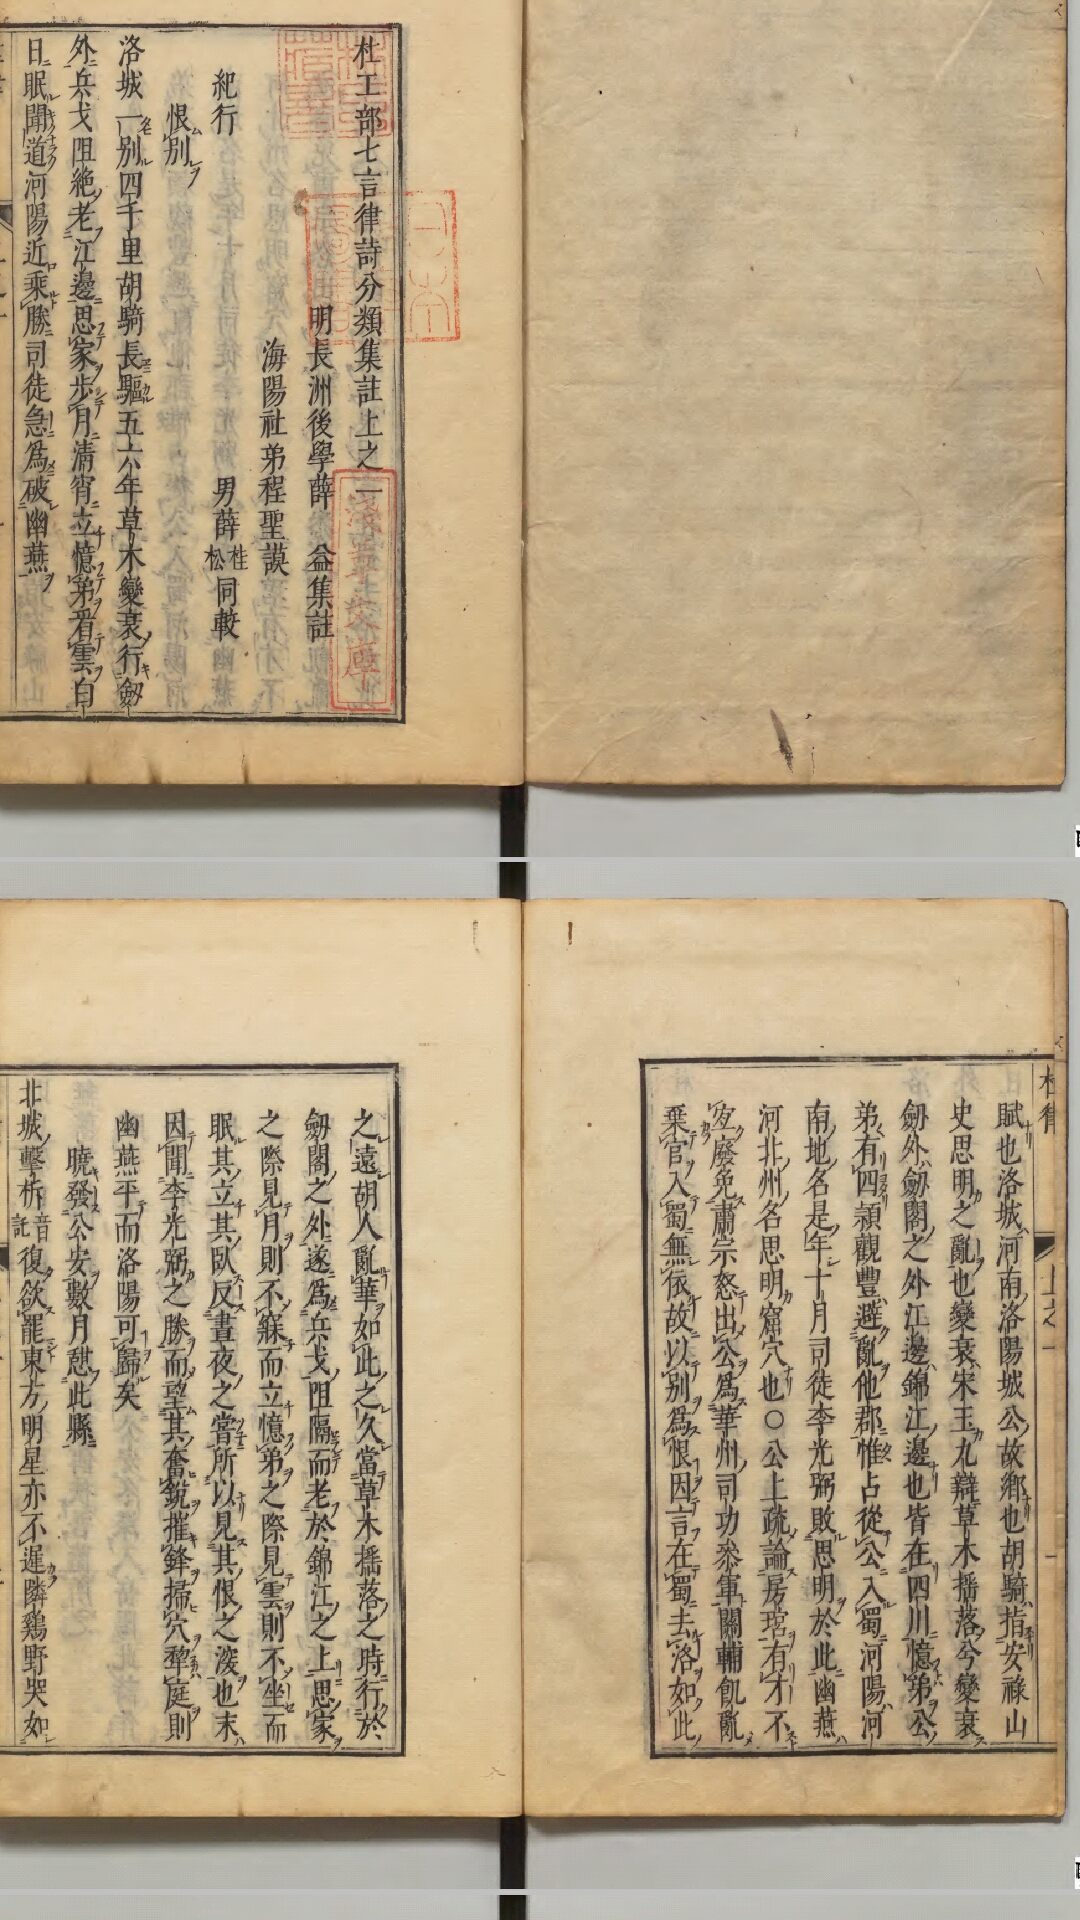 杜工部七言律詩分類集註上之一
明長洲後學薛 益集註
海陽社弟程聖謨
紀行 男薛桂松同較
恨別
洛城一別四千里胡騎長驅五六年草木變衰行劒
外兵戈阻絶老江邊思家步月清宵立憶弟看雲白
日眠聞道河陽近乘勝司徒急爲破幽燕
賦也洛城河南洛陽城公故鄉也胡騎指安祿山
史思明之亂也變衰宋玉九辯草木揺落兮變衰
劒外劒閣之外江邊錦江邊也皆在四川憶弟公
弟有四穎觀豐避亂他郡惟占從公入蜀河陽河
南地名是年十月司徒李光弼敗思明於此幽燕
河北州名思明窟穴也○公上疏論房琯有才不
宜廢免肅宗怒出公爲華州司功參軍關輔飢亂
棄官入蜀無依故以別爲恨因言在蜀去洛如此
之遠胡人亂華如此之久當草木揺落之時行於
劒閣之外遂爲兵戈阻隔而老於錦江之上思家
之際見月則不寐而立憶弟之際見雲則不坐而
眠其立其臥反晝夜之當所以見其恨之深也末
因聞李光弼之勝而望其奮銳摧鋒掃穴犂庭則
幽燕平而洛陽可歸矣
曉發公安數月憩此縣
北城擊柝音託復欲罷東方明星亦不遲隣鷄野哭如